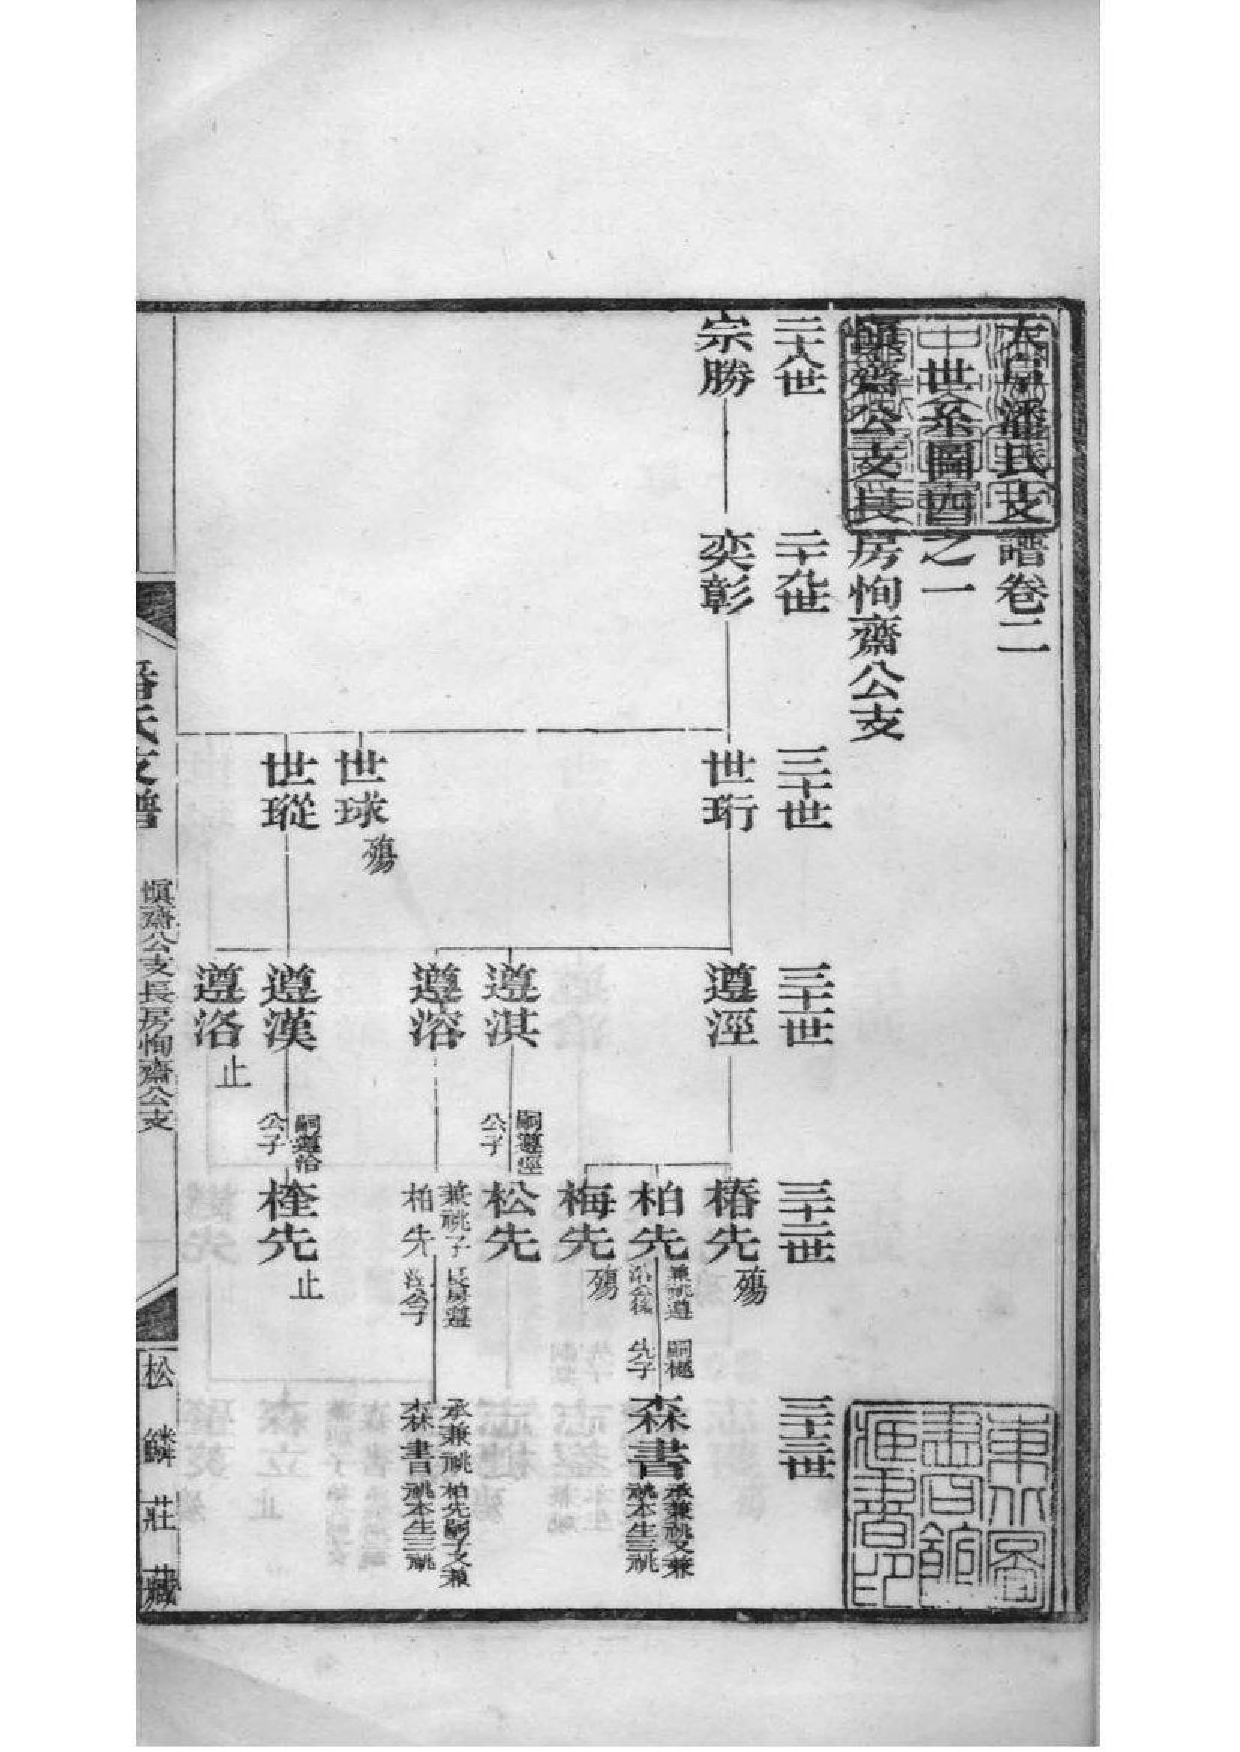 大阜潘氏支譜卷二
世系圖四之一
愼齋公支長房恂齋公支
二十八世
二十九世
三十世
三十一世
三十二世
三十三世
宗勝
奕彰
世珩
世球 殤
世瑽
遵涇
遵淇
遵溶
遵漢
遵洛 止
椿先 殤
柏先 兼祧遵溶公後
梅先 殤
嗣遵涇公子
松先
兼祧子柏先 長房遵涇公子
嗣遵洽公子
楏先 止
嗣樾先子
森書 承兼祧又兼祧本生三祧
承兼祧柏先嗣子又兼
森書 祧本生三祧
潘氏支譜
愼齋公支長房恂齋公支
松鱗莊藏
東方圖書館所藏善書印